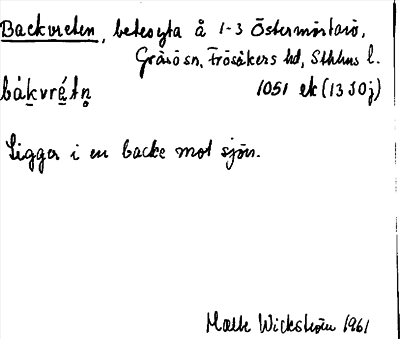 Backvreten, betesyta å 1-3 Östermörtarö,
Gräsö sn, Frösåkers hd, Sthlms l.
båkvrétn̥ 1051 ek (13J0j)
Ligger i en backe mot sjön.
Wickström 1961